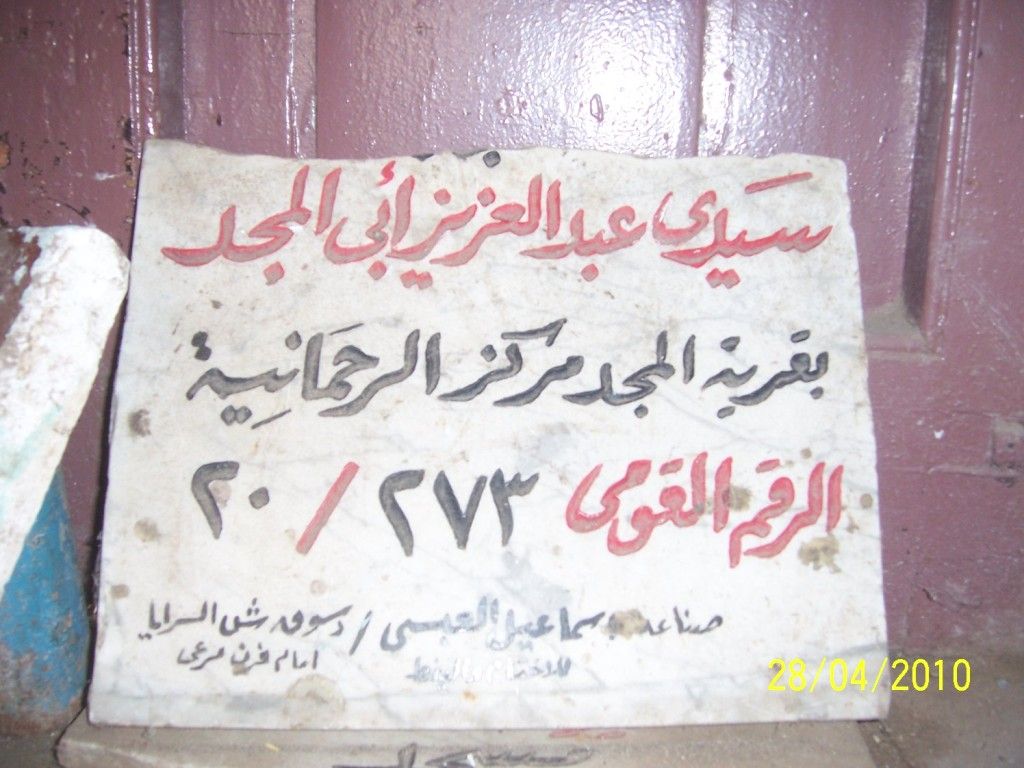 سَيّدي عبد العزيز أبي المجد
بقرية المجد مركز الرحمَانِية
الرقم القومى ٢٧٣ / ٢٠
صناعة إسماعيل العبسى / دسوق ش السرايا
امام فرن مرعى
28/04/2010